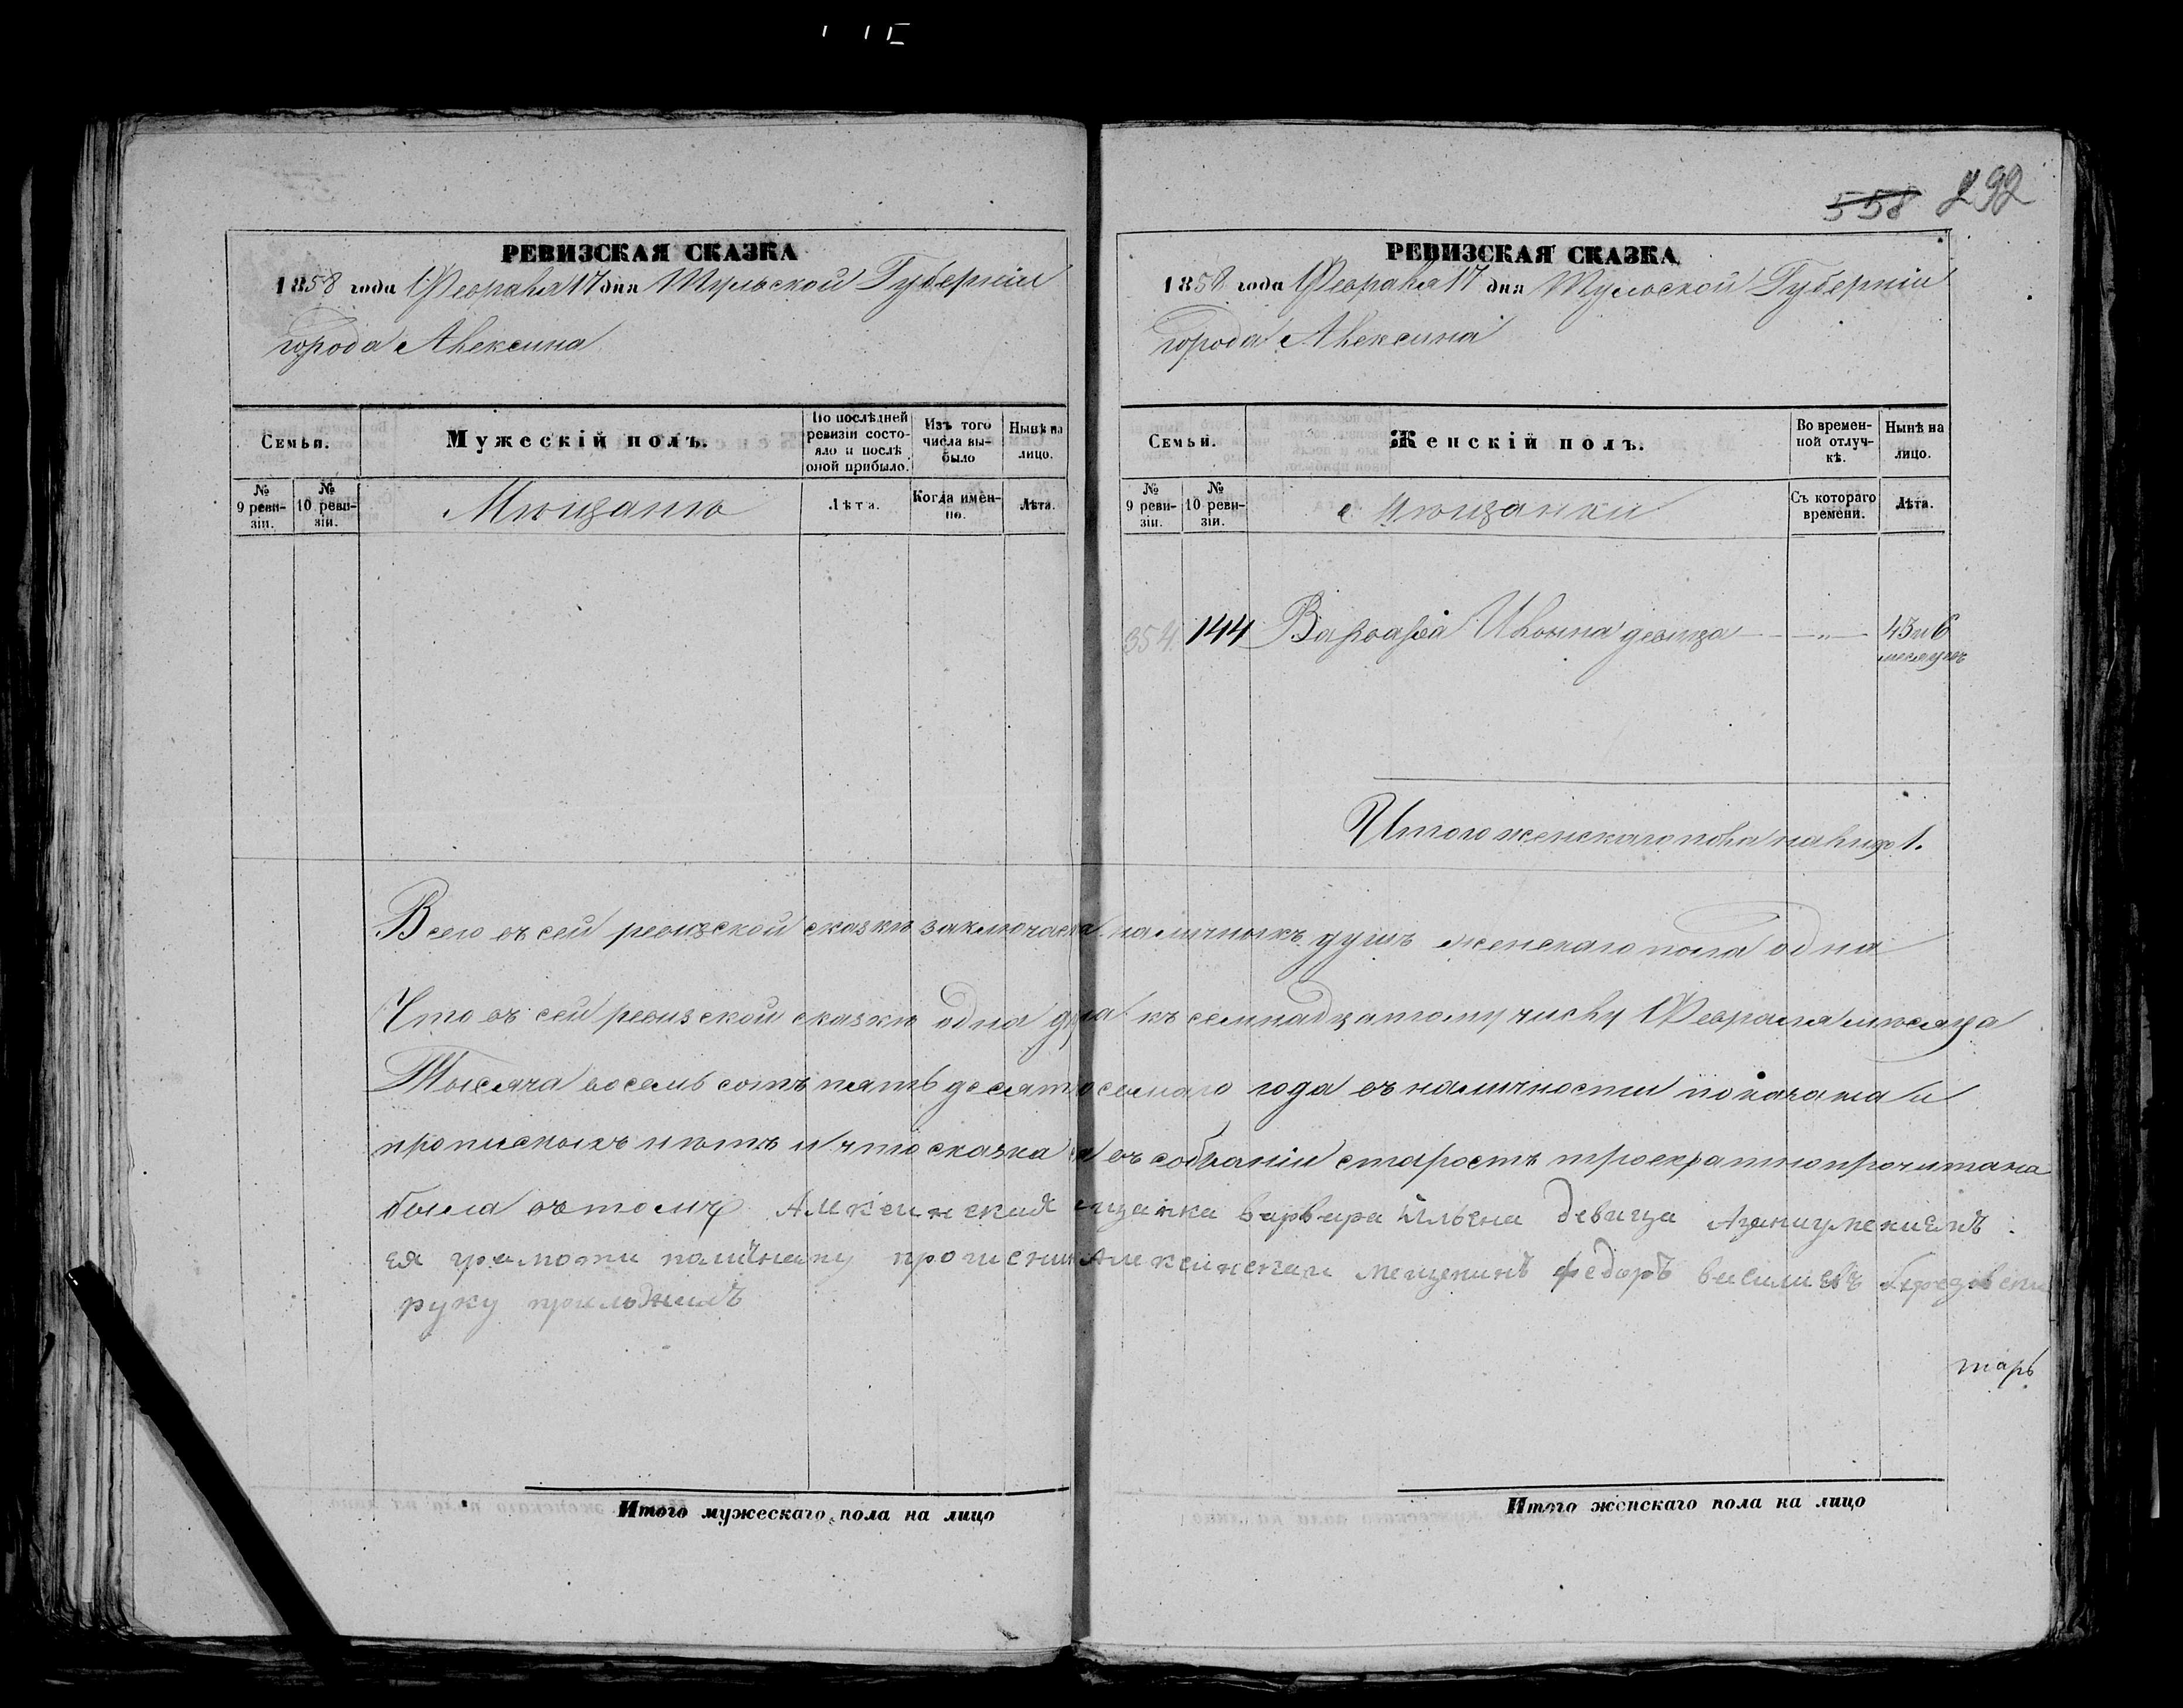 РЕВИЗСКАЯ СКАЗКА
1858 года Февраля 17 дня Тульской Губерніи
города Алексина
Семьи.
Мужескій полъ.
По послѣдней ревизіи состояло и послѣ оной прибыло.
Изъ того числа выбыло
Нынѣ на лицо.
№ 9 ревизіи.
№ 10 ревизіи.
Мѣщанѣ
Лѣта.
Когда именно.
Лѣта.
558 292
РЕВИЗСКАЯ СКАЗКА
1858 года Февраля 17 дня Тульской Губерніи
города Алексина
Семьи.
Женскій полъ.
Во временной отлучкѣ.
Нынѣ на лицо.
№ 9 ревизіи.
№ 10 ревизіи.
Мѣщанки
Съ котораго времени.
Лѣта.
354. 144 Варвара Ильина девица — " — 43 и 6
месяцовъ
Итого женскаго пола на лицо 1.
Всего въ сей ревизской сказкѣ заключается наличныхъ душъ женскаго пола одна
Что въ сей ревизской сказкѣ одна душа къ семнадцатому числу Февраля мѣсяца
Тысяча восемь сотъ пять десять осьмаго года въ наличности показана и
прописныхъ нѣтъ и что сказка въ собраніи старостъ троекратно прочитана
была въ томъ Алексинская мещанка варвара Ильена девица
ея грамоти прошению Алексинскай мещенинъ федоръ василиевъ
руку приложилъ
тарь
Итого мужескаго пола на лицо
Итого женскаго пола на лицо